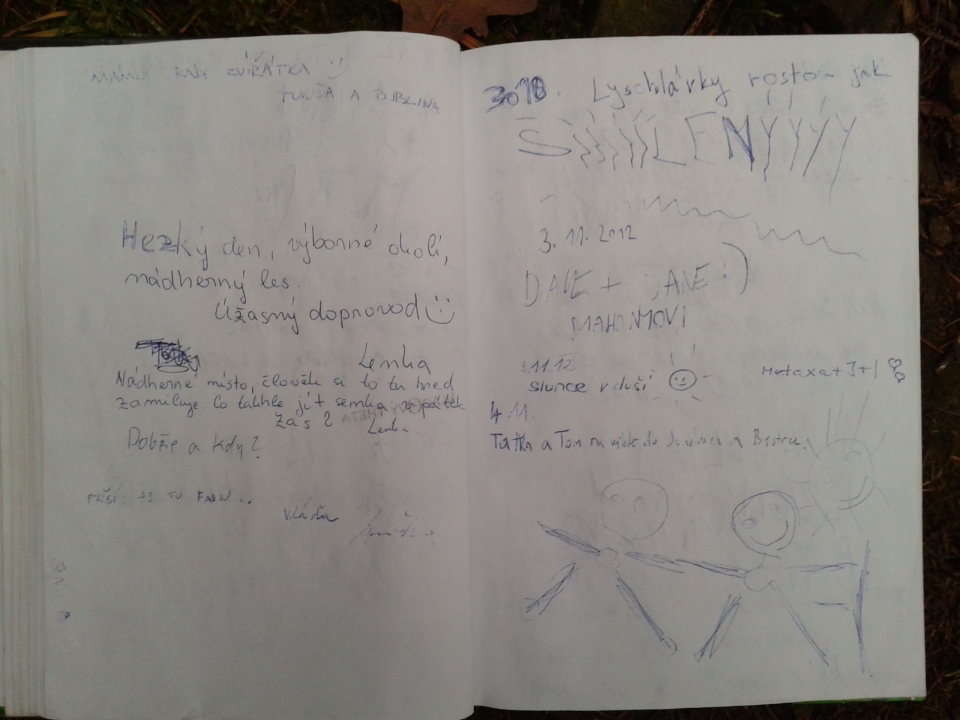 MÁME RÁDI ZVÍŘÁTKA
A
Hezký den, výborné okolí,
nádherný les.
Úžasný doprovod
Lenka
Nádherné místo, člověk si to tu hned
zamiluje Co takhle jít semka v pátek
zas?
Lenka.
Dobře a kdy?
PRŠÍ JE TU FAJN..
Vlasta
30 10. Lyschlávky rostou jak
ŠÍÍÍÍÍLENÝÝÝÝ
3. 11. 2012
DAVE + JANE :)
3.11.12
slunce v duši
Metaxa + J + !
4. 11.
Taťka a Tom na výletě do a